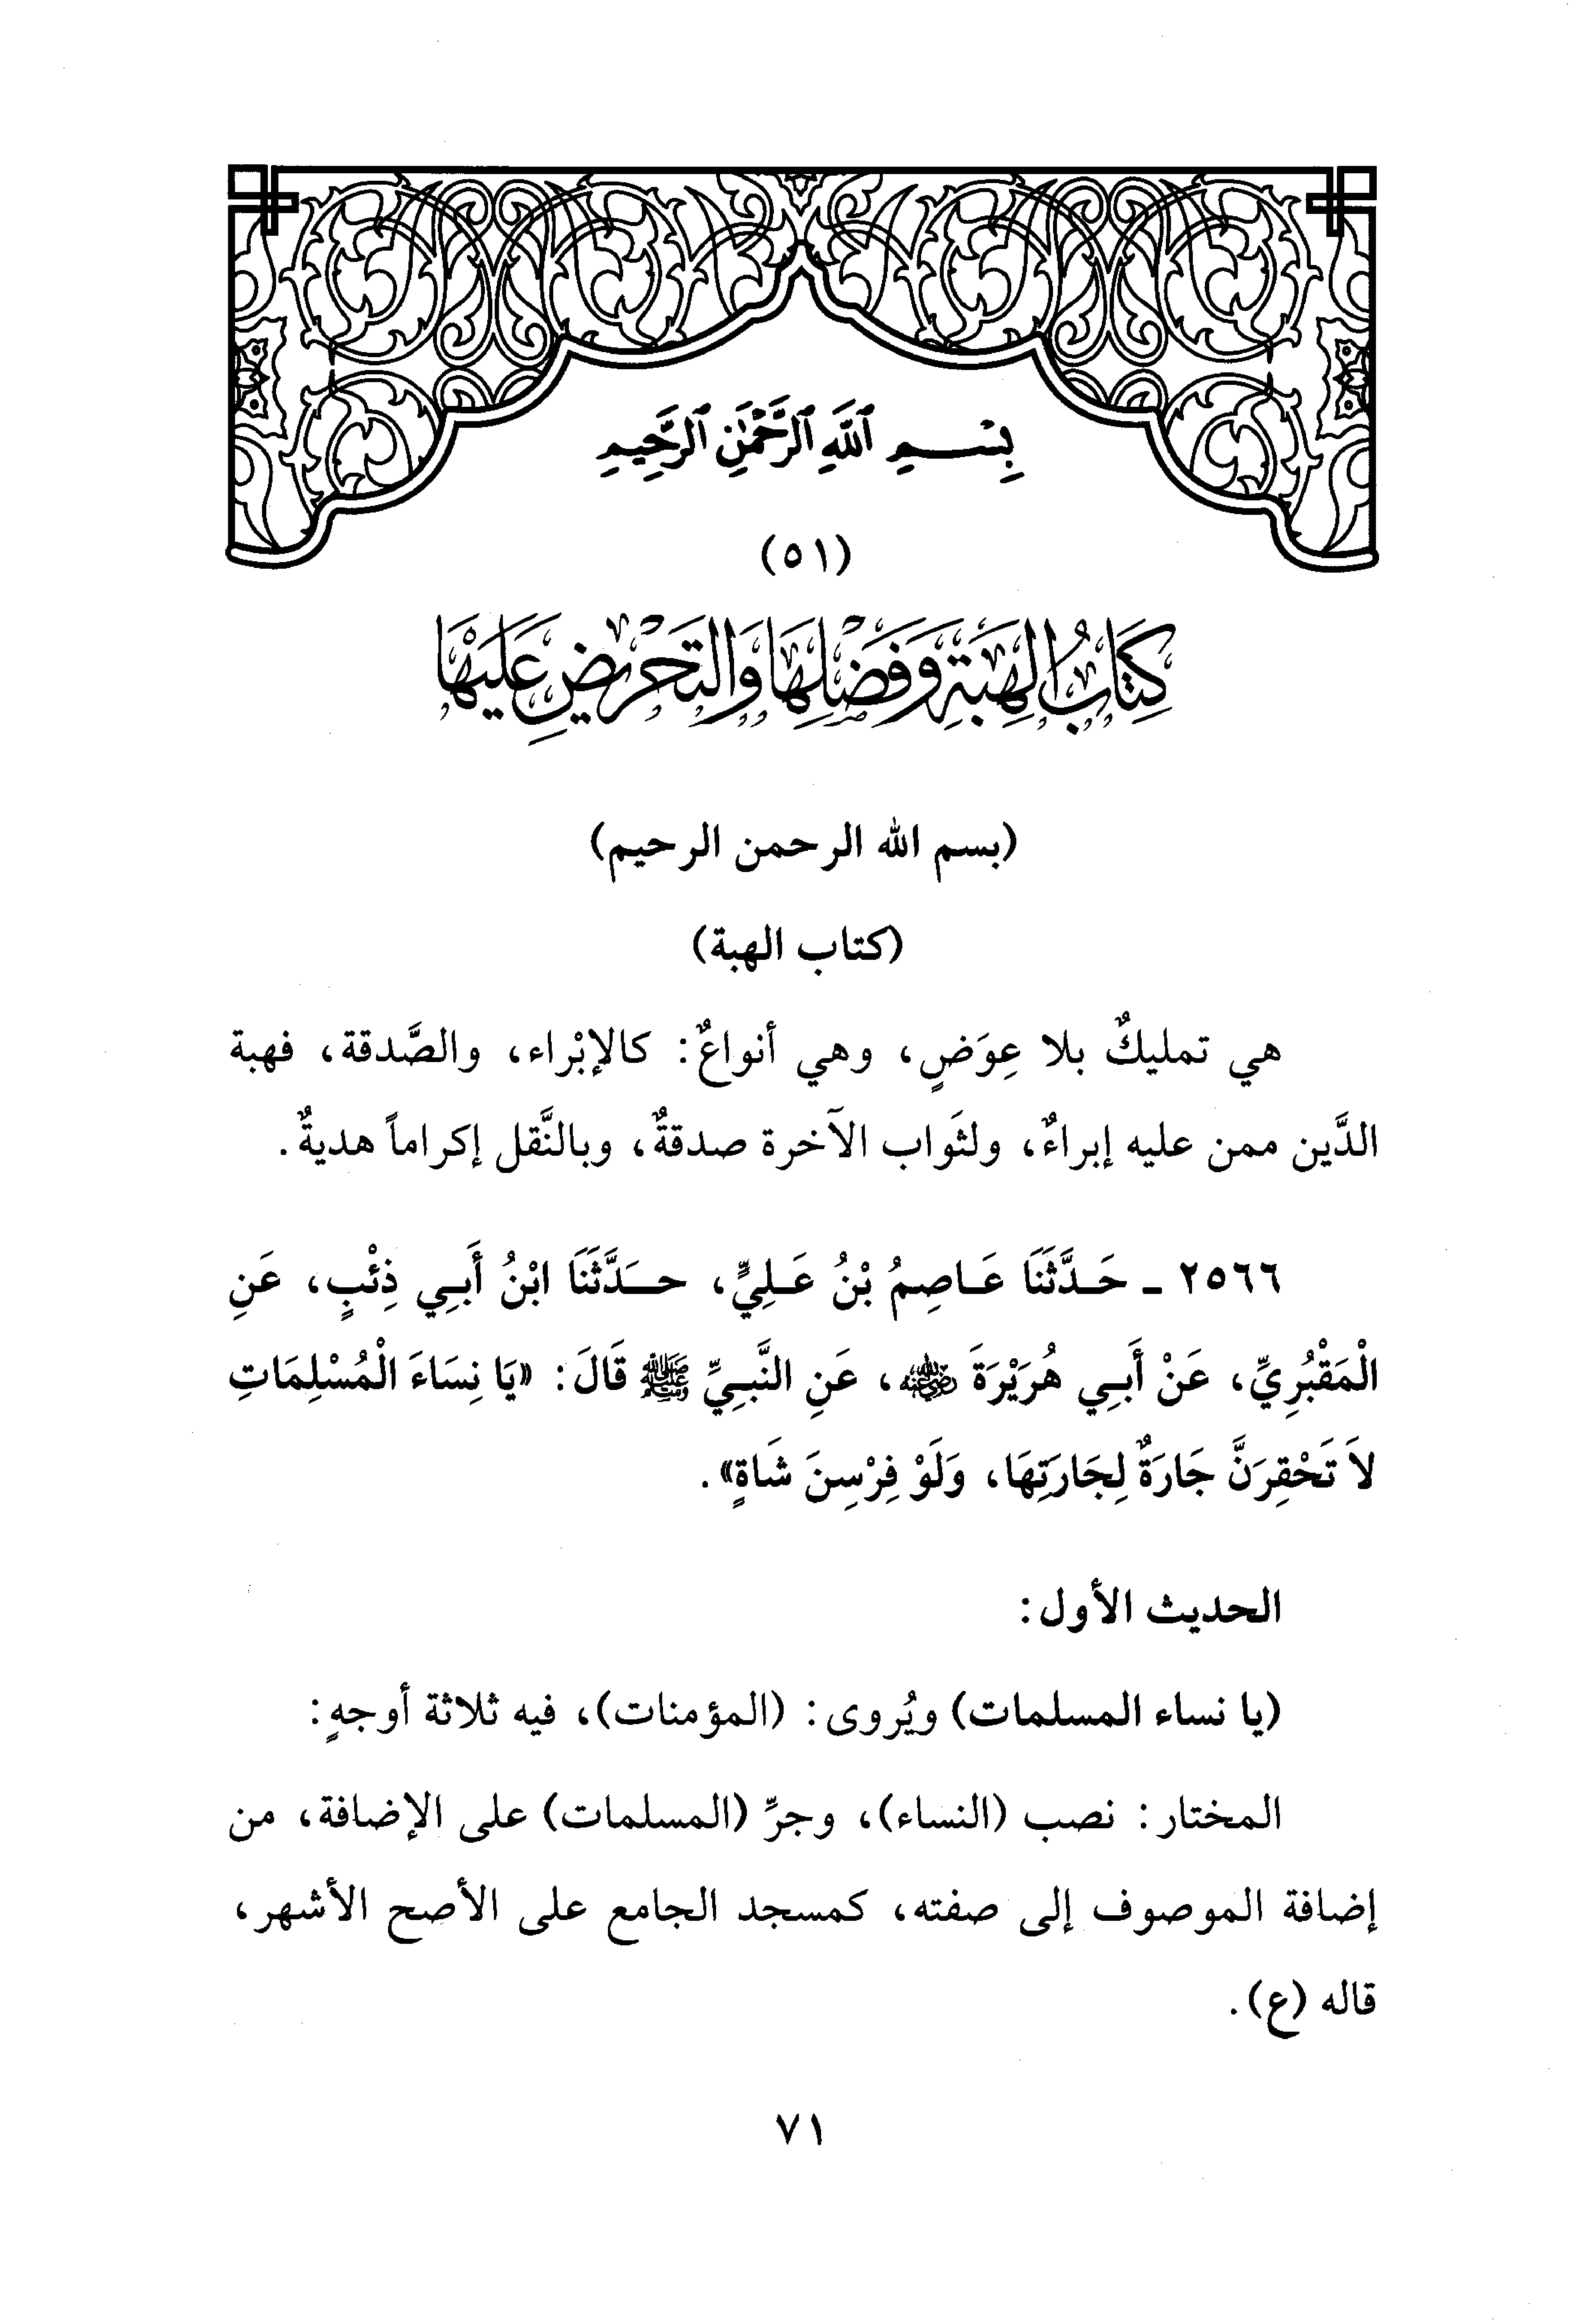 بِسْمِ ٱللَّهِ ٱلرَّحْمَٰنِ ٱلرَّحِيمِ
(٥١)
كِتَابُ الْهِبَةِ وَفَضْلِهَا وَالتَّحْرِيضِ عَلَيْهَا
(بسم الله الرحمن الرحيم)
(كتاب الهبة)
هي تمليكٌ بلا عِوَضٍ، وهي أنواعٌ: كالإبْراء، والصَّدقة، فهبة
الدَّين ممن عليه إبراءٌ، ولثَواب الآخرة صدقةٌ، وبالنَّقل إكراماً هديةٌ.
٢٥٦٦ ـ حَدَّثَنَا عَاصِمُ بْنُ عَلِيٍّ، حَدَّثَنَا ابْنُ أَبِي ذِئْبٍ، عَنِ
الْمَقْبُرِيِّ، عَنْ أَبِي هُرَيْرَةَ رضي الله عنه، عَنِ النَّبِيِّ ﷺ قَالَ: «يَا نِسَاءَ الْمُسْلِمَاتِ
لاَ تَحْقِرَنَّ جَارَةٌ لِجَارَتِهَا، وَلَوْ فِرْسِنَ شَاةٍ».
الحديث الأول:
(يا نساء المسلمات) ويُروى: (المؤمنات)، فيه ثلاثة أوجهٍ:
المختار: نصب (النساء)، وجرِّ (المسلمات) على الإضافة، من
إضافة الموصوف إلى صفته، كمسجد الجامع على الأصح الأشهر،
قاله (ع).
٧١